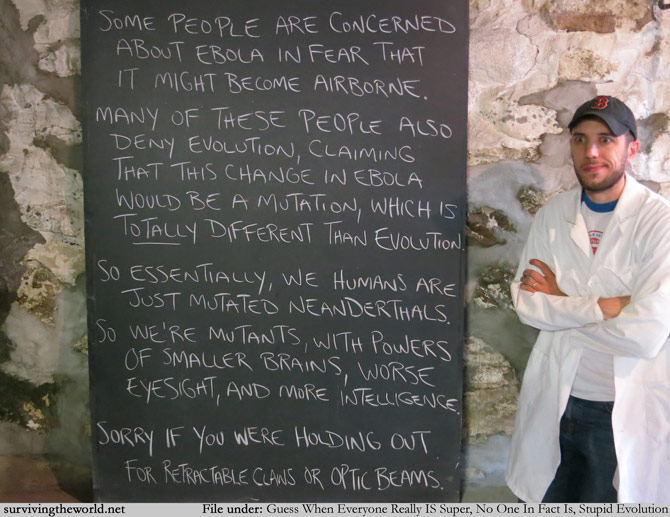 SOME PEOPLE ARE CONCERNED
ABOUT EBOLA IN FEAR THAT
IT MIGHT BECOME AIRBORNE.
MANY OF THESE PEOPLE ALSO
DENY EVOLUTION, CLAIMING
THAT THIS CHANGE IN EBOLA
WOULD BE A MUTATION, WHICH IS
TOTALLY DIFFERENT THAN EVOLUTION.
SO ESSENTIALLY, WE HUMANS ARE
JUST MUTATED NEANDERTHALS.
SO WE'RE MUTANTS, WITH POWERS
OF SMALLER BRAINS, WORSE
EYESIGHT, AND MORE INTELLIGENCE.
SORRY IF YOU WERE HOLDING OUT
FOR RETRACTABLE CLAWS OR OPTIC BEAMS.
B
survivingtheworld.net File under: Guess When Everyone Really IS Super, No One In Fact Is, Stupid Evolution